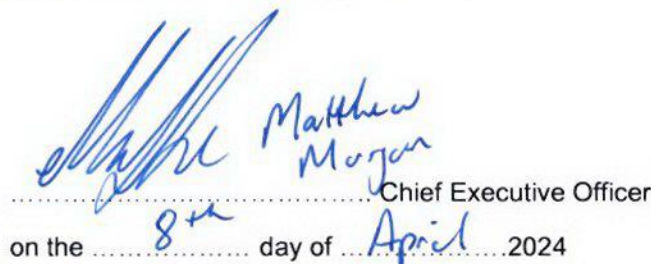 Matthew
Morgan
........................................................ Chief Executive Officer
on the ........8th........ day of ....April......2024